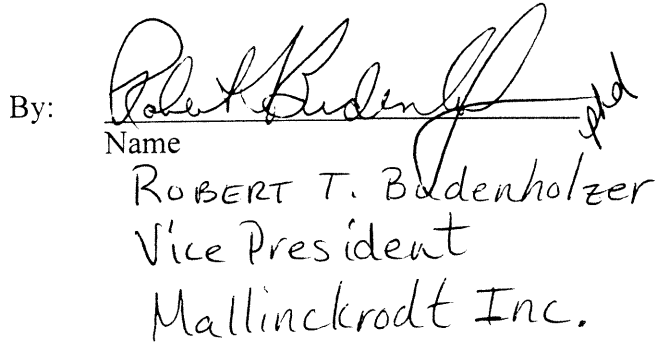 By: Robert Budenholzer phd
Name
ROBERT T. Budenholzer
Vice President
Mallinckrodt Inc.